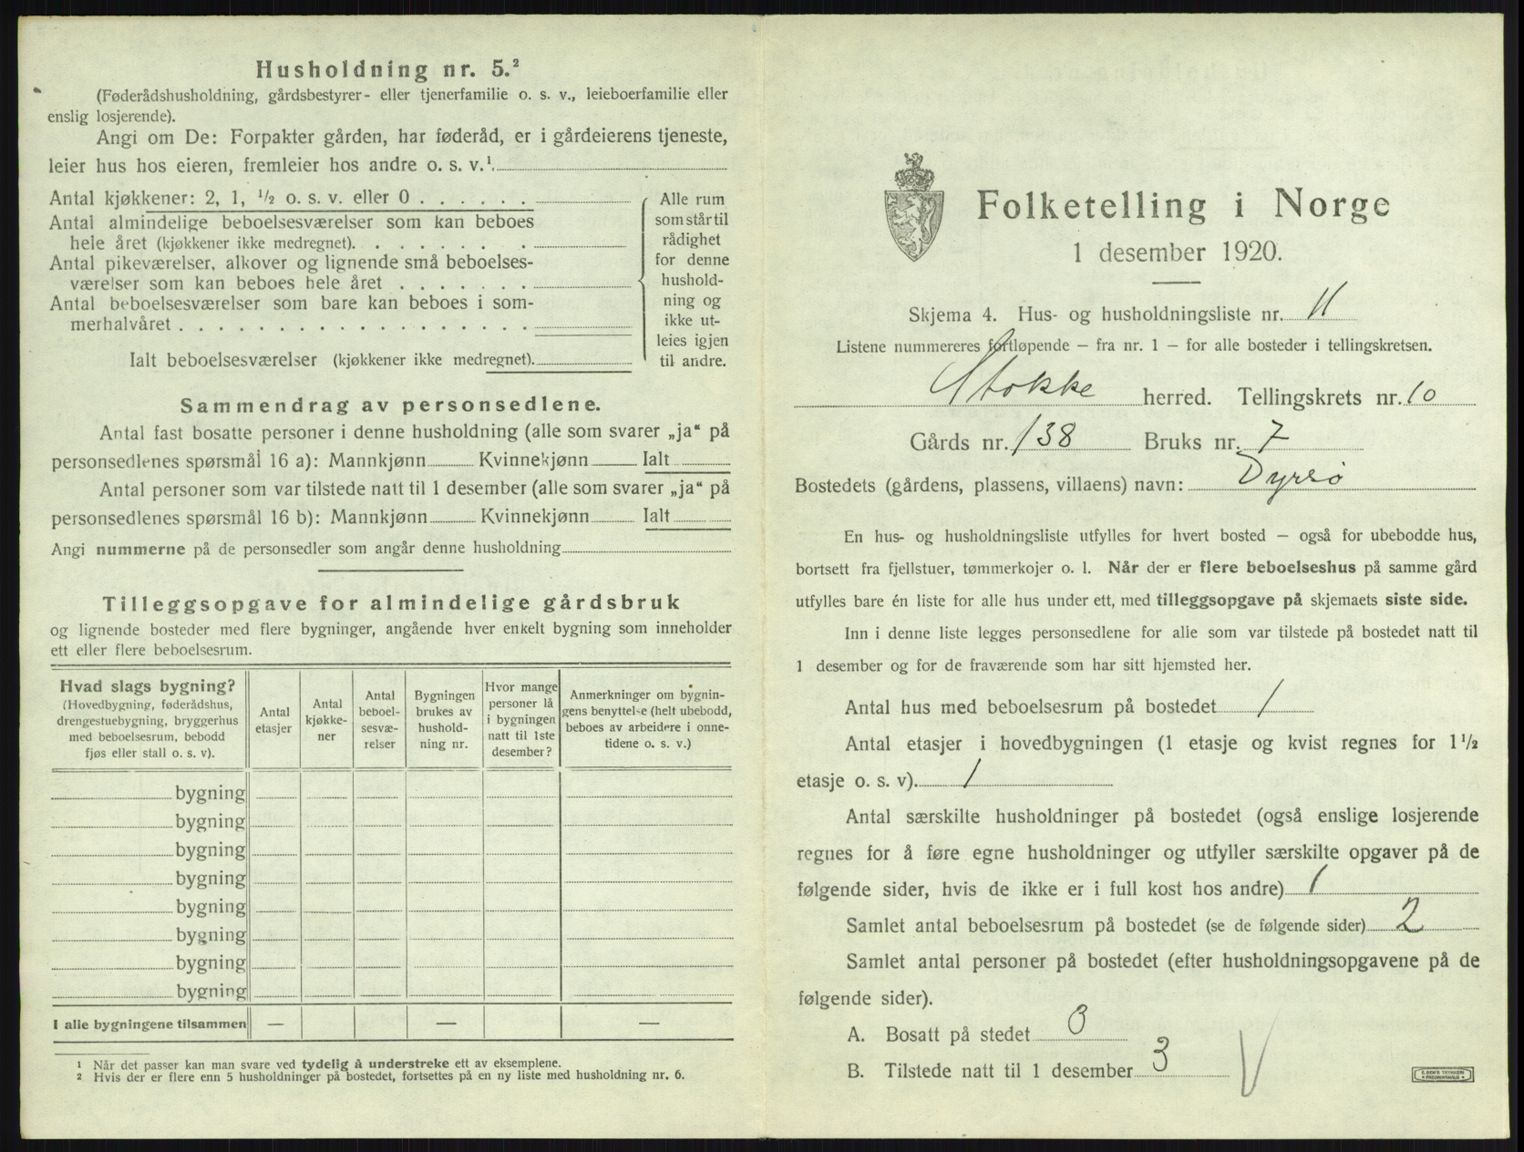 Husholdning nr. 5.²
(Føderådshusholdning, gårdsbestyrer- eller tjenerfamilie o. s. v., leieboerfamilie eller
enslig losjerende).
Angi om De: Forpakter gården, har føderåd, er i gårdeierens tjeneste,
leier hus hos eieren, fremleier hos andre o. s. v.¹
Antal kjøkkener: 2, 1, ½ o. s. v. eller 0
Antal almindelige beboelsesværelser som kan beboes
hele året (kjøkkener ikke medregnet).
Antal pikeværelser, alkover og lignende små beboelses-
værelser som kan beboes hele året
Antal beboelsesværelser som bare kan beboes i som-
merhalvåret
Ialt beboelsesværelser (kjøkkener ikke medregnet).
Alle rum
som står til
rådighet
for denne
hushold-
ning og
ikke ut-
leies igjen
til andre.
Sammendrag av personsedlene.
Antal fast bosatte personer i denne husholdning (alle som svarer „ja“ på
personsedlenes spørsmål 16 a): Mannkjønn Kvinnekjønn Ialt
Antal personer som var tilstede natt til 1 desember (alle som svarer „ja“ på
personsedlenes spørsmål 16 b): Mannkjønn Kvinnekjønn Ialt
Angi nummerne på de personsedler som angår denne husholdning
Tilleggsopgave for almindelige gårdsbruk
og lignende bosteder med flere bygninger, angående hver enkelt bygning som inneholder
ett eller flere beboelsesrum.
Hvad slags bygning?
(Hovedbygning, føderådshus,
drengestuebygning, bryggerhus
med beboelsesrum, bebodd
fjøs eller stall o. s. v).
Antal
etasjer
Antal
kjøkke-
ner
Antal
beboel-
sesvæ-
relser
Bygningen
brukes av
hushold-
ning nr.
Hvor mange
personer lå
i bygningen
natt til 1ste
desember?
Anmerkninger om bygnin-
gens benyttelse (helt ubebodd,
beboes av arbeidere i onne-
tidene o. s. v.)
bygning
bygning
bygning
bygning
bygning
bygning
bygning
bygning
I alle bygningene tilsammen — — —
¹ Når det passer kan man svare ved tydelig å understreke ett av eksemplene.
² Hvis der er flere enn 5 husholdninger på bostedet, fortsettes på en ny liste med husholdning nr. 6.
Folketelling i Norge
1 desember 1920.
Skjema 4. Hus- og husholdningsliste nr. 11
Listene nummereres fortløpende — fra nr. 1 — for alle bosteder i tellingskretsen.
Stokke herred. Tellingskrets nr. 10
Gårds nr. 138 Bruks nr. 7
Bostedets (gårdens, plassens, villaens) navn: Dyrsø
En hus- og husholdningsliste utfylles for hvert bosted — også for ubebodde hus,
bortsett fra fjellstuer, tømmerkojer o. l. Når der er flere beboelseshus på samme gård
utfylles bare én liste for alle hus under ett, med tilleggsopgave på skjemaets siste side.
Inn i denne liste legges personsedlene for alle som var tilstede på bostedet natt til
1 desember og for de fraværende som har sitt hjemsted her.
Antal hus med beboelsesrum på bostedet 1
Antal etasjer i hovedbygningen (1 etasje og kvist regnes for 1½
etasje o. s. v). 1
Antal særskilte husholdninger på bostedet (også enslige losjerende
regnes for å føre egne husholdninger og utfyller særskilte opgaver på de
følgende sider, hvis de ikke er i full kost hos andre) 1
Samlet antal beboelsesrum på bostedet (se de følgende sider) 2
Samlet antal personer på bostedet (efter husholdningsopgavene på de
følgende sider).
A. Bosatt på stedet 3
B. Tilstede natt til 1 desember 3